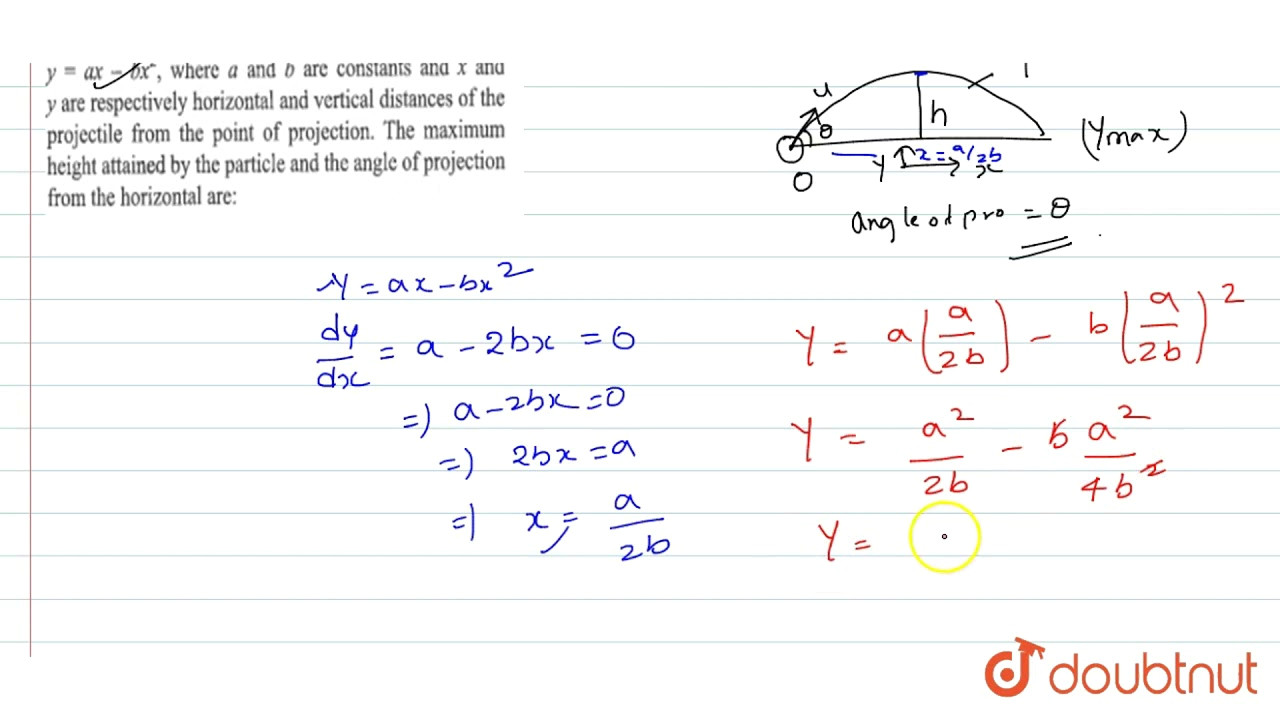 y = ax – bx², where a and b are constants and x and
y are respectively horizontal and vertical distances of the
projectile from the point of projection. The maximum
height attained by the particle and the angle of projection
from the horizontal are:
u
θ
h
(Ymax)
O
y
x = a/2b
x
angle of pro = θ
Y = ax – bx²
dy/dx = a – 2bx = 0
=) a – 2bx = 0
=) 2bx = a
=) x = a/2b
Y = a(a/2b) – b(a/2b)²
Y = a²/2b – b a²/4b²
Y =
doubtnut